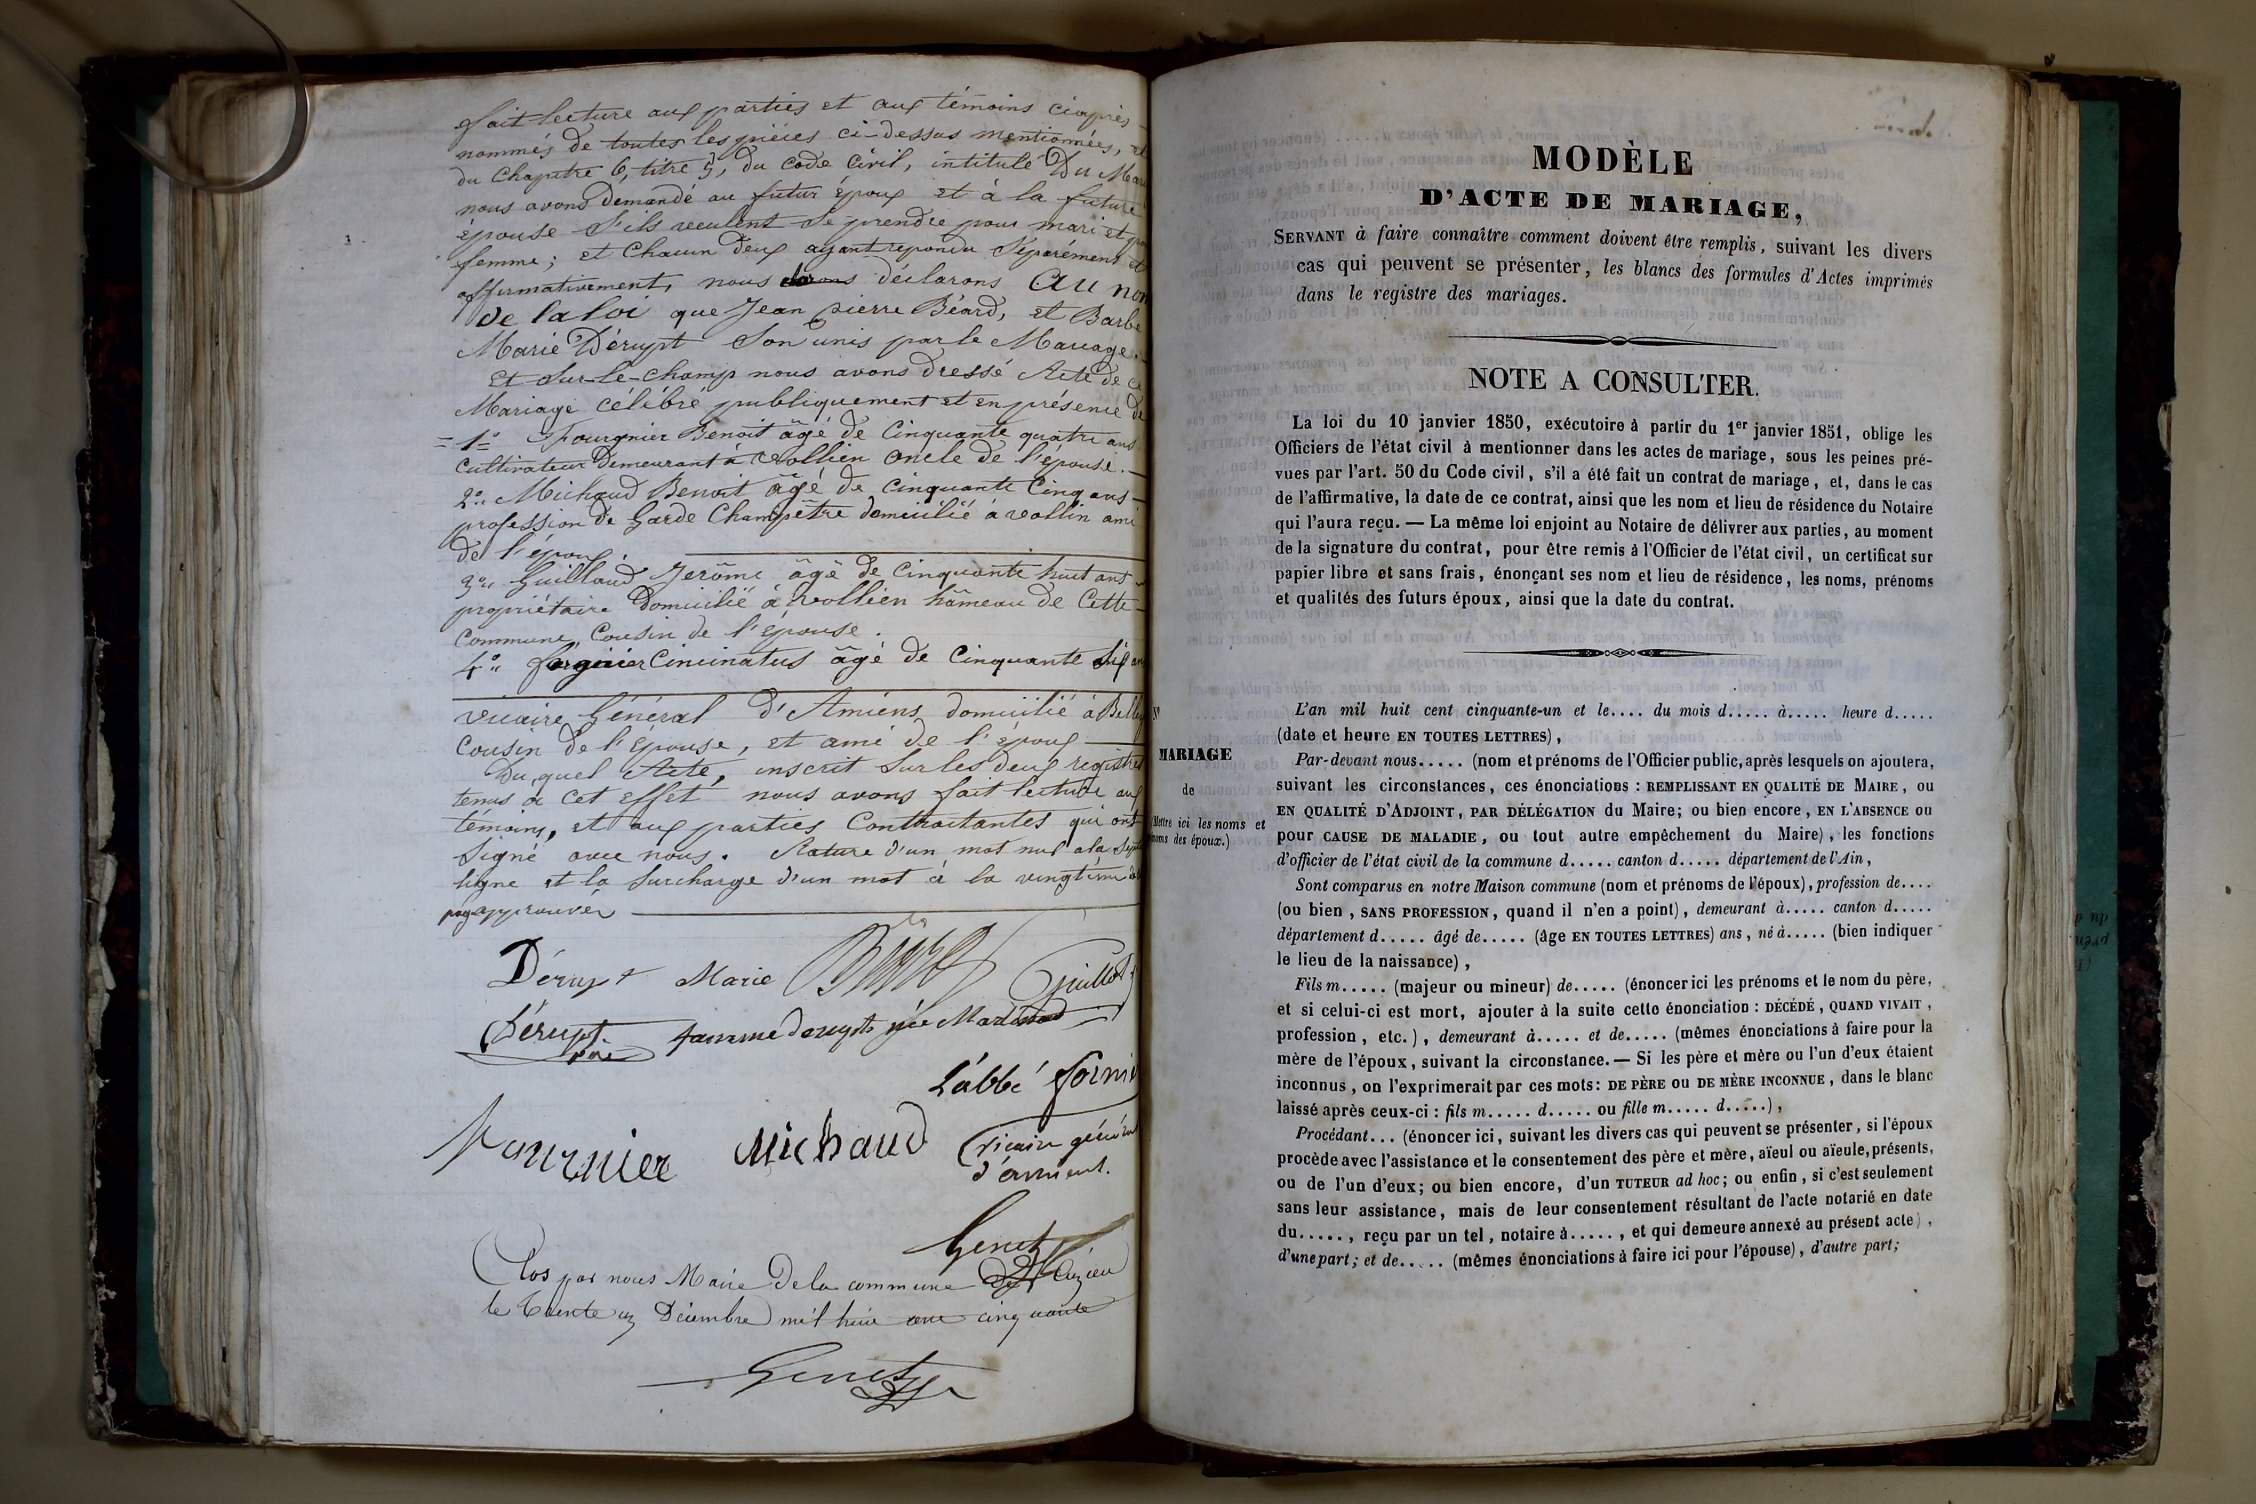 fait lecture aux parties et aux témoins ciaprès
nommés de toutes les pièces ci-dessus mentionnées, et
du Chapitre 6, titre 5, du Code Civil, intitulé Du Mari
nous avons Demandé au futur époux et à la future
épouse S'ils veulent Se prendre pour mari et pour
femme; et Chacun Deux ayant repondu Séparément et
affirmativement, nous déclarons Au nom
De la loi que Jean pierre Béard, et Barbe
Marie Dérupt Son unis par le Mariage.
Et Sur-le-champ nous avons Dressé Acte de ce
Mariage célébré publiquement et en présence de
= 1° Fourgnier Benoit âgé de Cinquante quatre ans
Cultivateur Demeurant à Vollien oncle De l'épouse.
2° Michaud Benoit âgé de Cinquante Cinq ans
profession De Garde Champêtre domicilié à vollin ami
De l'époux
3° Guillaud Jerôme âgé De Cinquante huit ans
propriétaire Domicilié à Vollien hâmeau de Cette
Commune, Cousin de l'epouse.
4° Cincinatus âgé de Cinquante Six ans
vicaire Général D'Amiens domicilié à Belley
Cousin De l'Épouse, et ami De l'époux
Du quel Acte, inscrit Sur les Deux registres
tenus à Cet Effet nous avons fait lecture aux
témoins, et aux parties Contractantes qui ont
Signé avec nous. Rature D'un mot nul a la Sept
ligne et la Surcharge D'un mot à la vingtième
approuvés
Dérupt Marie Guillot
Dérupt père femme derupt née
L'abbé fornier
Fournier Michaud vicaire général
d'amiens.
Genet
Clos par nous Maire De la commune de Cuzieu
le trente un Décembre mil huit cent cinquante
Genet
MODÈLE
D'ACTE DE MARIAGE,
SERVANT à faire connaître comment doivent être remplis, suivant les divers
cas qui peuvent se présenter, les blancs des formules d'Actes imprimés
dans le registre des mariages.
NOTE A CONSULTER.
La loi du 10 janvier 1850, exécutoire à partir du 1er janvier 1851, oblige les
Officiers de l'état civil à mentionner dans les actes de mariage, sous les peines pré-
vues par l'art. 50 du Code civil, s'il a été fait un contrat de mariage, et, dans le cas
de l'affirmative, la date de ce contrat, ainsi que les nom et lieu de résidence du Notaire
qui l'aura reçu. — La même loi enjoint au Notaire de délivrer aux parties, au moment
de la signature du contrat, pour être remis à l'Officier de l'état civil, un certificat sur
papier libre et sans frais, énonçant ses nom et lieu de résidence, les noms, prénoms
et qualités des futurs époux, ainsi que la date du contrat.
N°
MARIAGE
de
(Mettre ici les noms et
prénoms des époux.)
L'an mil huit cent cinquante-un et le.... du mois d..... à..... heure d.....
(date et heure EN TOUTES LETTRES),
Par-devant nous..... (nom et prénoms de l'Officier public, après lesquels on ajoutera,
suivant les circonstances, ces énonciations : REMPLISSANT EN QUALITÉ DE MAIRE, ou
EN QUALITÉ D'ADJOINT, PAR DÉLÉGATION du Maire; ou bien encore, EN L'ABSENCE ou
pour CAUSE DE MALADIE, ou tout autre empêchement du Maire), les fonctions
d'officier de l'état civil de la commune d..... canton d..... département de l'Ain,
Sont comparus en notre Maison commune (nom et prénoms de l'époux), profession de....
(ou bien, SANS PROFESSION, quand il n'en a point), demeurant à..... canton d.....
département d..... âgé de..... (âge EN TOUTES LETTRES) ans, né à..... (bien indiquer
le lieu de la naissance),
Fils m..... (majeur ou mineur) de..... (énoncer ici les prénoms et le nom du père,
et si celui-ci est mort, ajouter à la suite cette énonciation : DÉCÉDÉ, QUAND VIVAIT,
profession, etc.), demeurant à..... et de..... (mêmes énonciations à faire pour la
mère de l'époux, suivant la circonstance. — Si les père et mère ou l'un d'eux étaient
inconnus, on l'exprimerait par ces mots: DE PÈRE OU DE MÈRE INCONNUE, dans le blanc
laissé après ceux-ci : fils m..... d..... ou fille m..... d.....),
Procédant... (énoncer ici, suivant les divers cas qui peuvent se présenter, si l'époux
procède avec l'assistance et le consentement des père et mère, aïeul ou aïeule, présents,
ou de l'un d'eux; ou bien encore, d'un TUTEUR ad hoc; ou enfin, si c'est seulement
sans leur assistance, mais de leur consentement résultant de l'acte notarié en date
du....., reçu par un tel, notaire à....., et qui demeure annexé au présent acte),
d'une part; et de..... (mêmes énonciations à faire ici pour l'épouse), d'autre part;